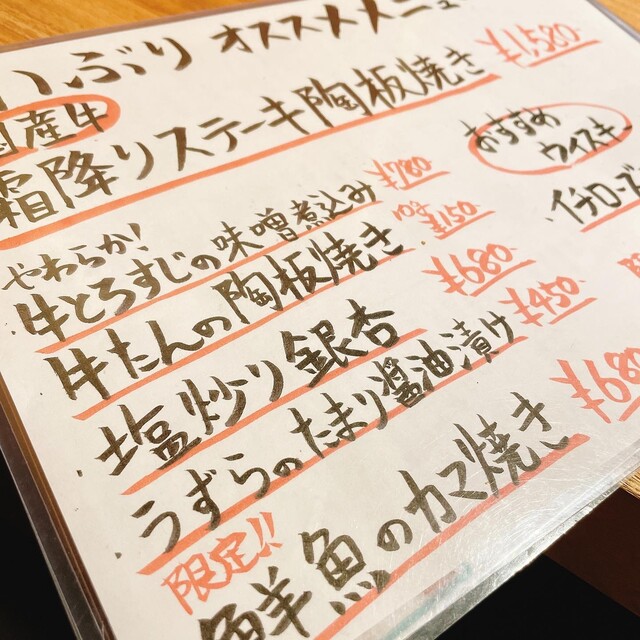 いぶり オススメメニュ
国産牛
霜降りステーキ陶板焼き ¥1,580-
やわらか!
牛とろすじの味噌煮込み ¥780-
牛たんの陶板焼き ¥150-
塩炒り銀杏 ¥680-
うずらのたまり醤油漬け ¥450-
限定!!
鮮魚のカマ焼き
おすすめ
ウイスキー
イチローズ